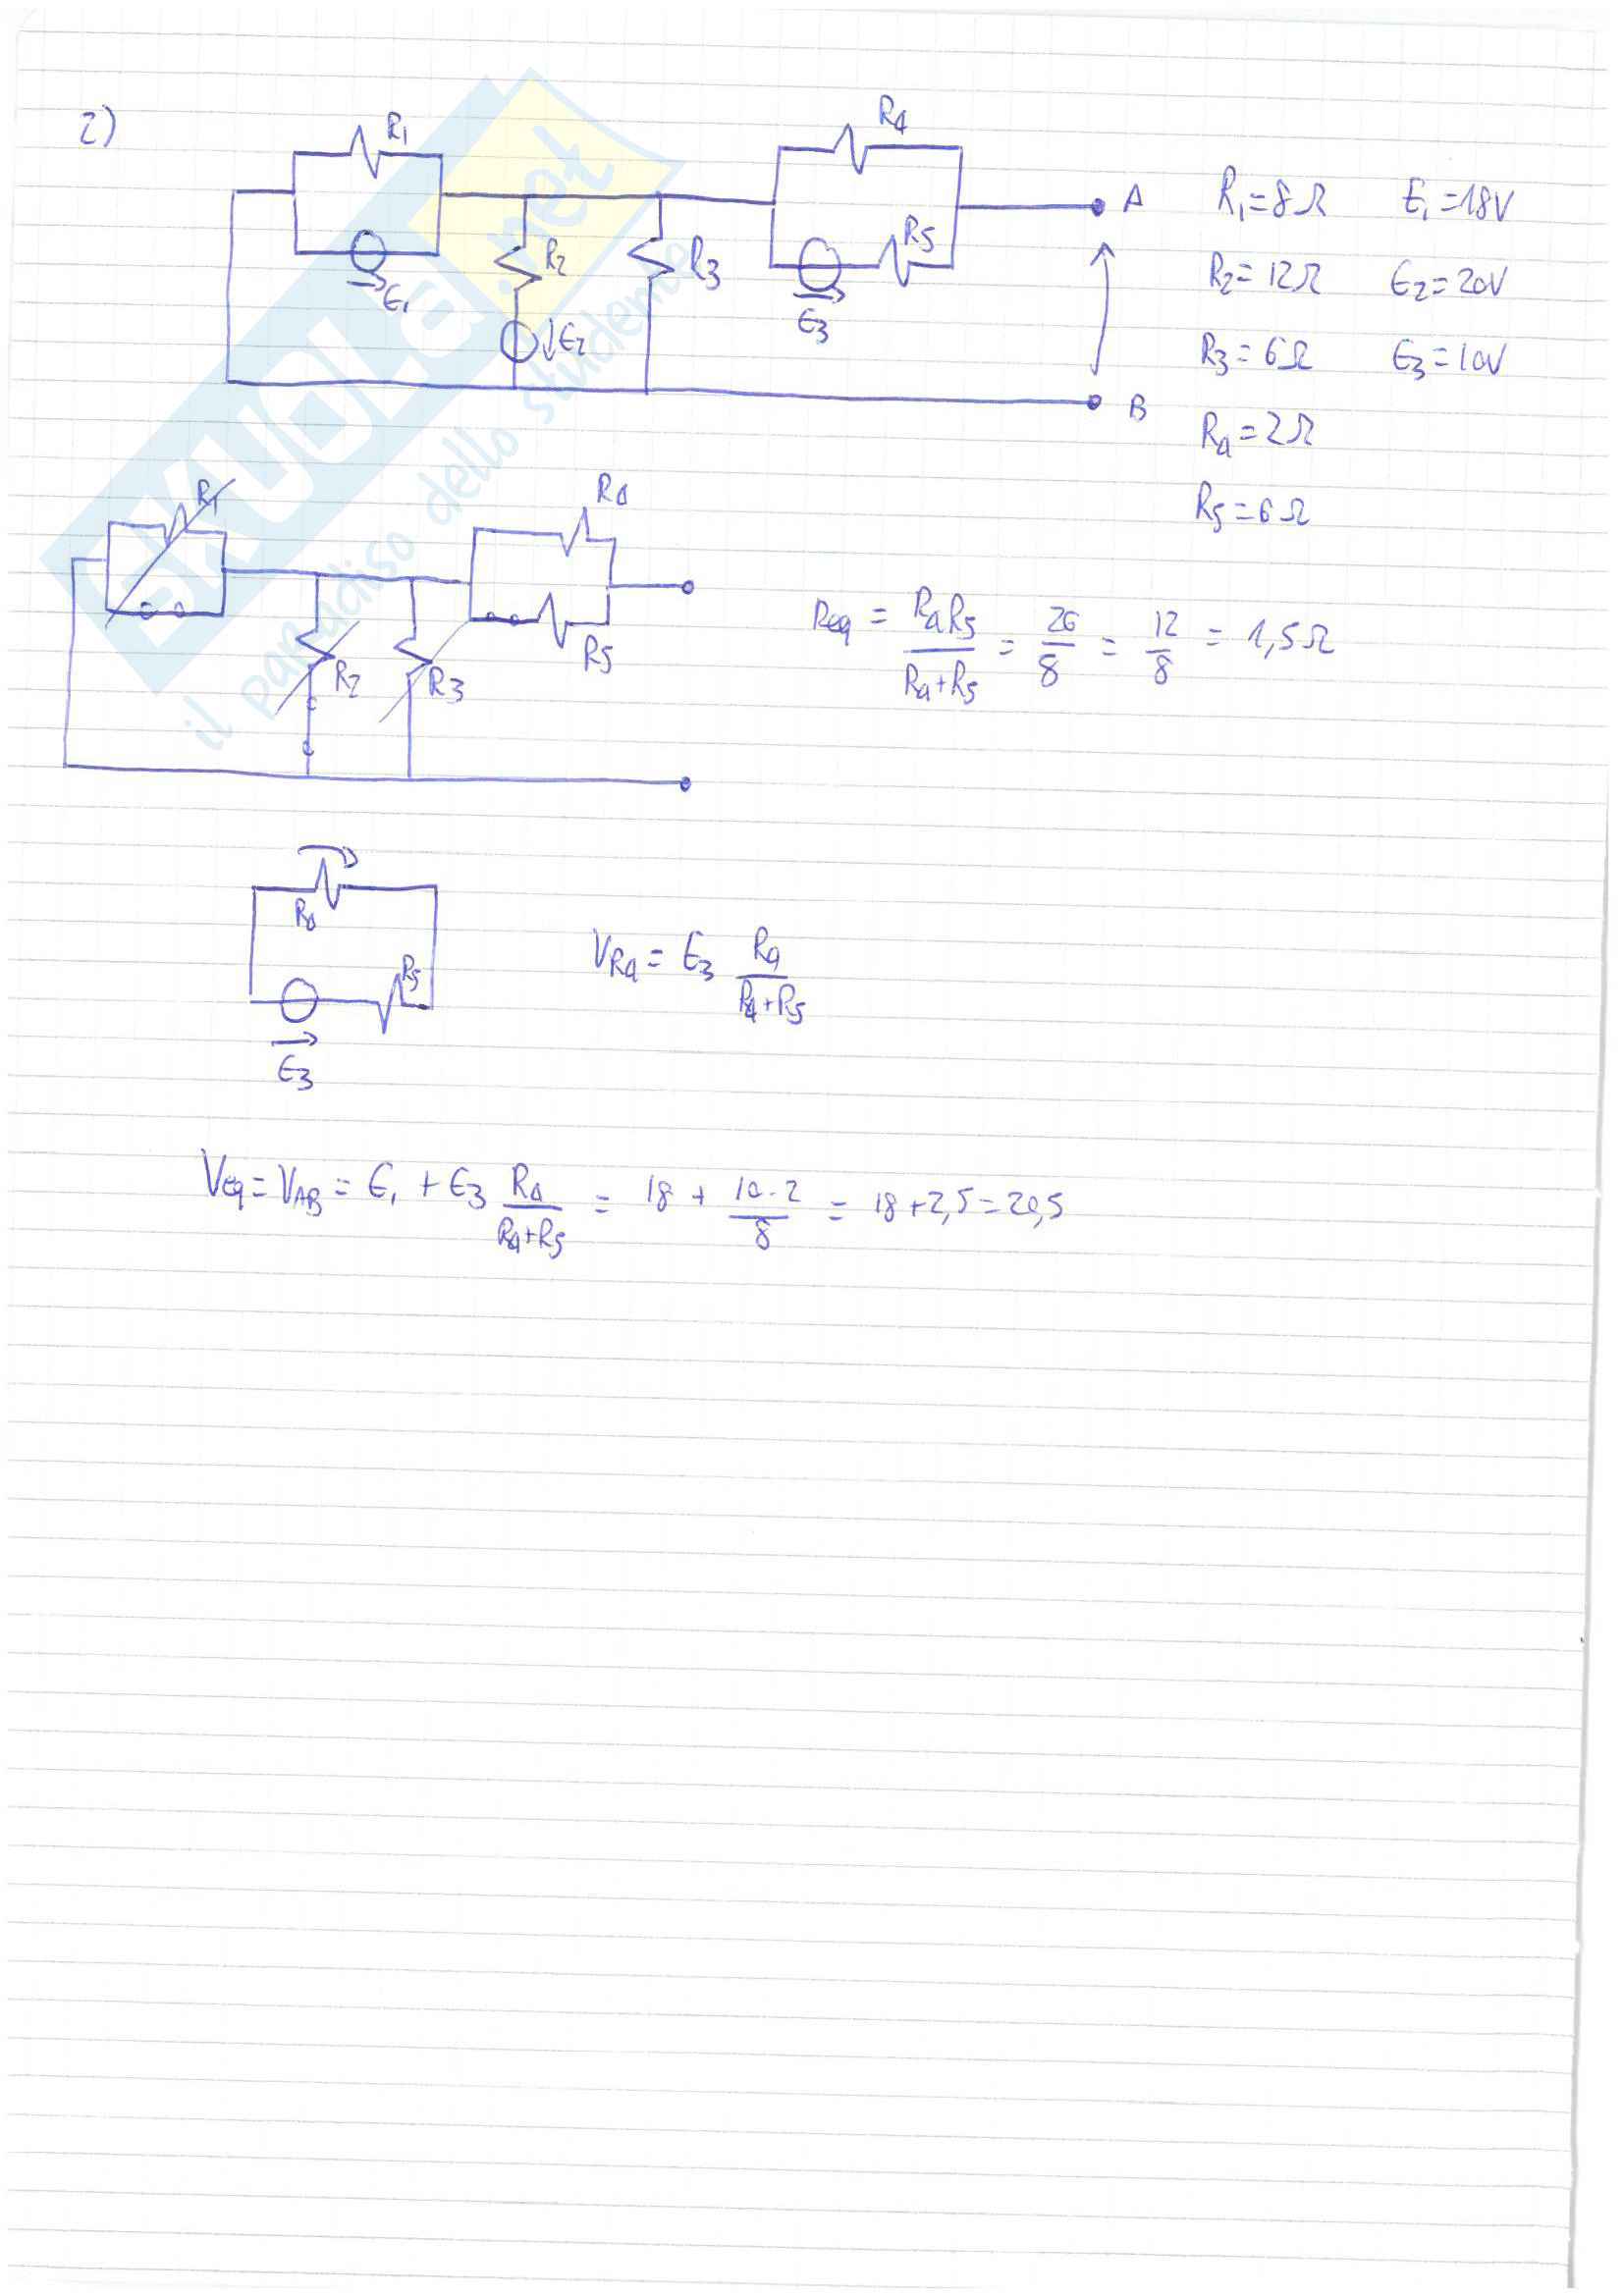 2)
R1
R4
A
R1=8Ω E1=18V
E1
R2
R3
R5
E3
R2=12Ω E2=20V
E2
R3=6Ω E3=10V
B
R4=2Ω
R5=6Ω
SKUOLA.net
il paradiso dello studente
R1
R4
R2
R3
R5
Req = R4R5/R4+R5 = 26/8 = 12/8 = 1,5Ω
R4
R5
E3
VR4 = E3 R4/R4+R5
Veq = VAB = E1 + E3 R4/R4+R5 = 18 + 10·2/8 = 18+2,5=20,5